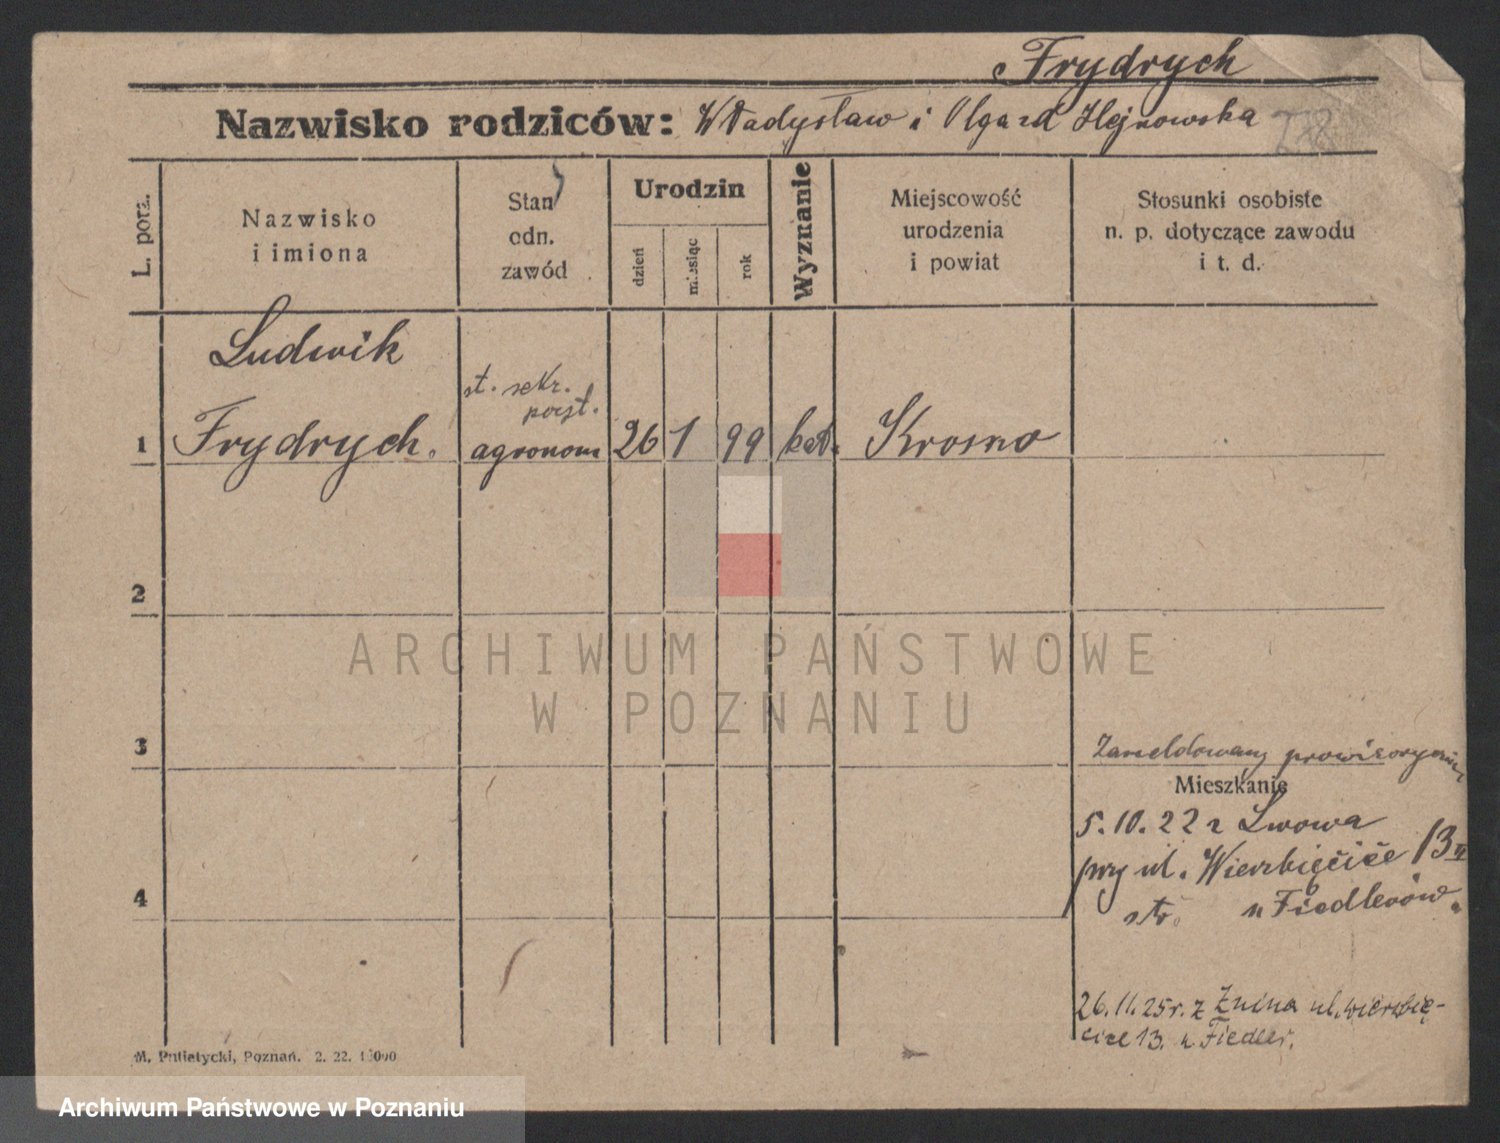 Frydrych
Nazwisko rodziców: Władysław i Olga zd Hejnowska
L. porz.
Nazwisko
i imiona
Stan
odn.
zawód
Urodzin
dzień
miesiąc
rok
Wyznanie
Miejscowość
urodzenia
i powiat
Stosunki osobiste
n. p. dotyczące zawodu
i t. d.
Ludwik
st. sekr.
poczt.
1 Frydrych. agronom 26 1 99 kat. Krosno
2
ARCHIWUM PAŃSTWOWE
W POZNANIU
3
Zameldowany prowizorycznie
Mieszkanie
5.10.22 z Lwowa
przy ul. Wierzbięcice 13 II
str. u Fiedlerów.
4
26.11.25r. z Żnina ul. wierzbię-
cice 13. u Fiedler.
M. Putiatycki, Poznań. 2. 22. 1 000
Archiwum Państwowe w Poznaniu